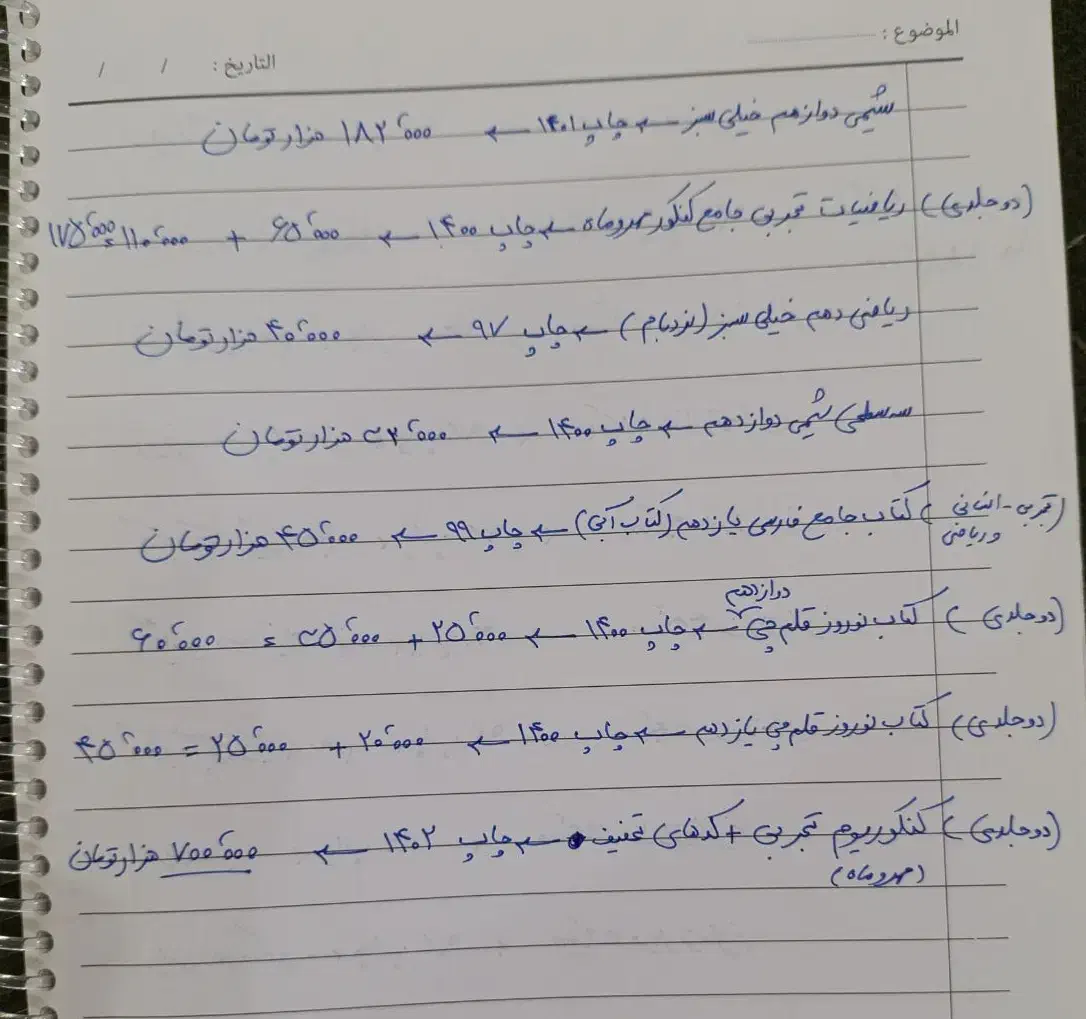 الموضوع :
التاريخ : / /
شیمی دوازدهم خیلی سبز ← چاپ ۱۴۰۱ ← ۱۸۲٬۰۰۰ هزار تومان
(دو جلدی) ریاضیات تجربی جامع کنکور مهروماه ← چاپ ۱۴۰۰ ← ۶۵٬۰۰۰ + ۱۱۰٬۰۰۰ = ۱۷۵٬۰۰۰
ریاضی دهم خیلی سبز (نردبام) ← چاپ ۹۷ ← ۴۰٬۰۰۰ هزار تومان
سه سطحی شیمی دوازدهم ← چاپ ۱۴۰۰ ← ۳۲٬۰۰۰ هزار تومان
(تجربی - انسانی و ریاضی) کتاب جامع فارسی یازدهم (کتاب آبی) ← چاپ ۹۹ ← ۴۵٬۰۰۰ هزار تومان
(دو جلدی) کتاب نوروز قلم چی دوازدهم ← چاپ ۱۴۰۰ ← ۲۵٬۰۰۰ + ۳۵٬۰۰۰ = ۶۰٬۰۰۰
(دو جلدی) کتاب نوروز قلم چی یازدهم ← چاپ ۱۴۰۰ ← ۲۰٬۰۰۰ + ۲۵٬۰۰۰ = ۴۵٬۰۰۰
(دو جلدی) کنکوریوم تجربی + کدهای تخفیف ← چاپ ۱۴۰۲ ← ۷۰۰٬۰۰۰ هزار تومان
(مهروماه)